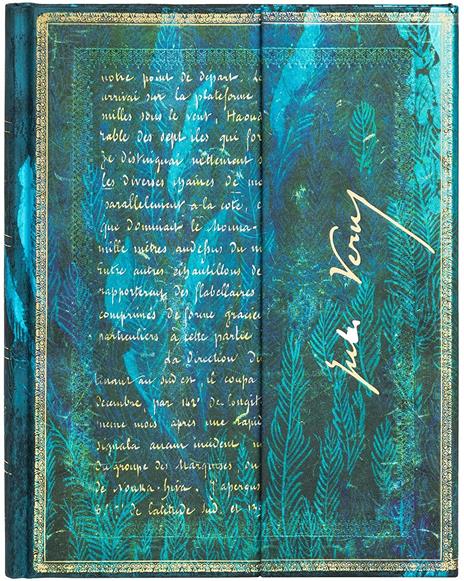 notre point de départ. Le
arrivai sur la plateforme
milles sous le vent, Haoua
rable des sept iles qui for
Je distinguai nettement s
les diverses chaines de mo
parallèlement à la côte, c
que dominait le Mouna-
mille mètres au dessus du n
entre autres échantillons de
rapportèrent des flabellaires
comprimés de forme gracieu
particuliers à cette partie
La direction Du
tenant au sud est, il coupa
décembre, par 142° de longit
meme mois, après une rapid
signala aucun incident,
du groupe des Marquises, ou
de Nouka-hiva. J'aperçus
de latitude Sud, et 13
Jules Verne